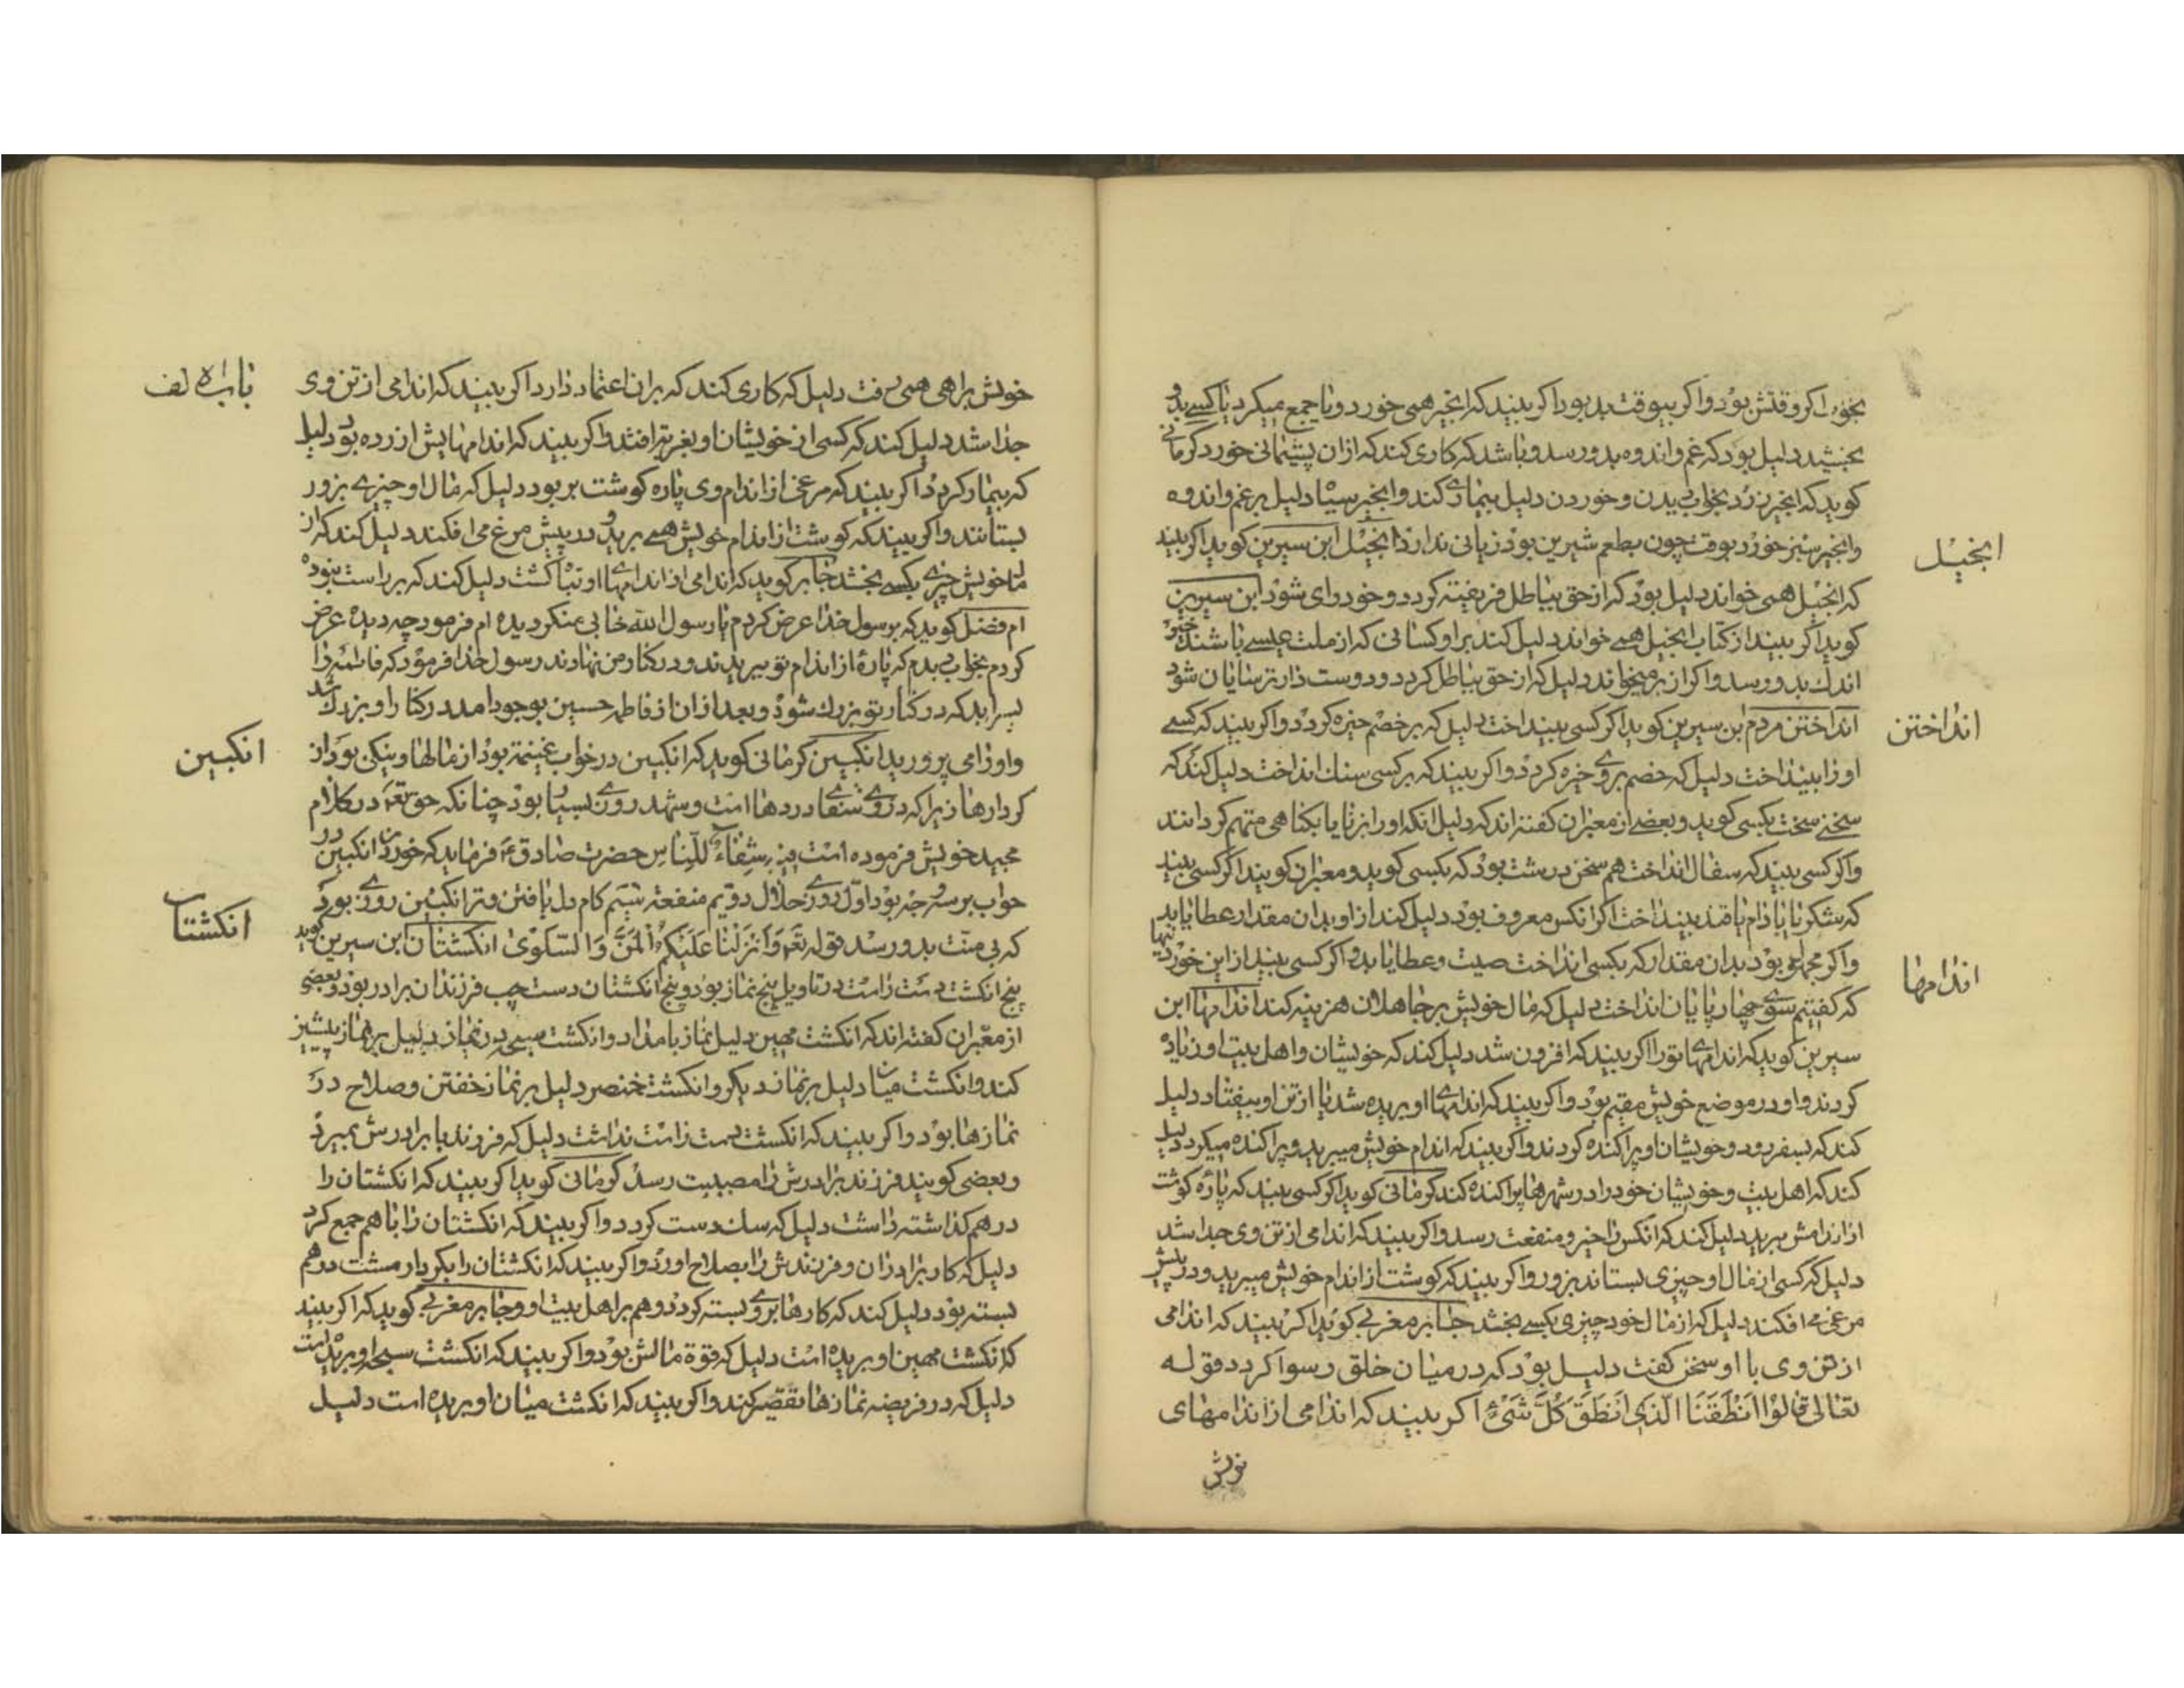 بخورد اکر وقتش بود واکر بیوقت بد بود اکر بیند که انجیر همی خورد و یا جمع میکرد یا کسی بدو
بخشید دلیل بود که غم و اندوه بدو رسد و باشد که کاری کند که ازان پشیمانی خورد کرمانی
کوید که انجیر زرد بخواب دیدن و خوردن دلیل بیماری کند و انجیر سیاه دلیل بر غم و اندوه
وانجیر سبز خورد بوقت چون بطعم شیرین بود زیانی ندارد انجیل ابن سیرین کوید اکر بیند
انجیل
که انجیل همی خواند دلیل بود که از حق بباطل فریفته کردد و خود رای شود ابن سیرین
کوید اکر بیند از کتاب انجیل همی خواند دلیل کند بر او کسانی که از ملت عیسی باشند خیر
اندك بدو رسد واکر از بر میخواند دلیل که از حق بباطل کردد و دوست دار ترسایان شود
انداختن مردم ابن سیرین کوید اکر کسی بیند اخت دلیل که بر خصم خیره کردد واکر بیند که کسی
انداختن
او را بینداخت دلیل که خصم بروی خیره کردد واکر بیند که بر کسی سنك انداخت دلیل کند که
سخنی سخت بکسی کوید و بعضی از معبران کفته اند که دلیل انکه او را بزنا یا بکناهی متهم کردانند
واکر کسی بیند که سفال انداخت هم سخن درشت بود که بکسی کوید و معبران کویند اکر کسی بیند
که شکر یا بادام یا قند بینداخت اکر انکس معروف بود دلیل کند از او بدان مقدار عطا یابد
واکر مجهول بود بدان مقدار که بکسی انداخت صیت و عطا یابد واکر کسی بیند از این خوردنیها
اندامها
که کفتیم سوی چهارپایان انداخت دلیل که مال خویش بر جاهلان هزینه کند اندامها ابن
سیرین کوید که اندامهای تو را اکر بیند که افزون شد دلیل کند که خویشان و اهل بیت او زیاد
کردند و او در موضع خویش مقیم بود واکر بیند که اندامهای او بریده شد یا از تن او بیفتاد دلیل
کند که بسفر رود و خویشان او پراکنده کردند واکر بیند که اندام خویش میبرید و پراکنده میکرد دلیل
کند که اهل بیت و خویشان خود را در شهرها پراکنده کند کرمانی کوید اکر کسی بیند که پاره کوشت
از اندامش ببرید دلیل کند که انکس را خیر و منفعت رسد واکر بیند که اندامی از تن وی جدا شد
دلیل که کسی از مال او چیزی بستاند بزور واکر بیند که کوشت از اندام خویش میبرید و در پیش
مرغی می افکند دلیل که از مال خود چیزی بکسی بخشد جابر مغربی کوید اکر بیند که اندامی
از تن وی با او سخن کفت دلیل بود که در میان خلق رسوا کردد قوله
تعالی قالوا انطقنا الذی انطق کل شیء اکر بیند که اندامی از اندامهای
خویش
باب الالف
خویش براهی همی رفت دلیل که کاری کند که بران اعتماد دارد اکر بیند که اندامی از تن وی
جدا شد دلیل کند که کسی از خویشان او بغربت افتد واکر بیند که اندامهایش ازرده بود دلیل
که بیمار کردد اکر بیند که مرغی از اندام وی پاره کوشت بربود دلیل که مال او چیزی بزور
بستانند واکر بیند که کوشت از اندام خویش همی برید و در پیش مرغ می افکند دلیل کند که از
مال خویش چیزی بکسی بخشد جابر کوید که اندامی از اندامهای او تباه کشت دلیل کند که بر راست نبوده
ام فضل کوید که برسول خدا عرض کردم یا رسول الله خوابی منکر دیده ام فرمود چه دیده عرض
کردم بخواب دیدم که پارهٔ از اندام تو ببریدند و در کنار من نهادند رسول خدا فرمود که فاطمه را
پسر اید که در کنار تو بزرك شود و بعد ازان از فاطمه حسین بوجود امد در کنار او بزرك شد
و او را می پرورید انکبین کرمانی کوید که انکبین در خواب غنیمت بود از مالها و نیکی بود از
انکبین
کردارها زیرا که در وی شفای دردها است و شهد روزی بسیار بود چنانکه حق تعالی در کلام
مجید خویش فرموده است فیه شفاء للناس حضرت صادق ع فرماید که خوردن انکبین در
خواب بر سه وجه بود اول روزی حلال دویم منفعت سیم کام دل یافتن و ترانکبین روزی بود
انکشتان
که بی منت بدو رسد قوله تعالی و انزلنا علیکم المن و السلوی انکشتان ابن سیرین کوید
پنج انکشت دست راست در تاویل پنج نماز بود و پنج انکشتان دست چپ فرزندان برادر بود و بعضی
از معبران کفته اند که انکشت مهین دلیل نماز بامداد و انکشت مسبحه در نماز دلیل بر نماز پیشین
کند و انکشت میان دلیل بر نماز دیکر و انکشت خنصر دلیل بر نماز خفتن و صلاح در
نمازها بود واکر بیند که انکشت دست راست نداشت دلیل که فرزند یا برادرش بمیرد
و بعضی کویند فرزند برادرش را مصیبت رسد کرمانی کوید اکر بیند که انکشتان را
در هم کذاشته داشت دلیل که تنك دست کردد واکر بیند که انکشتان را باهم جمع کرد
دلیل که کار برادران و فرزندش را بصلاح اورد واکر بیند که انکشتان را بکردار مشت در هم
بسته بود دلیل کند که کارها بروی بسته کردد و هم بر اهل بیت او و جابر مغربی کوید که اکر بیند
که انکشت مهین او بریده است دلیل که قوة مالش بود واکر بیند که انکشت سبحه او بریده است
دلیل که در فریضه نمازها تقصیر کند واکر بیند که انکشت میان او بریده است دلیل